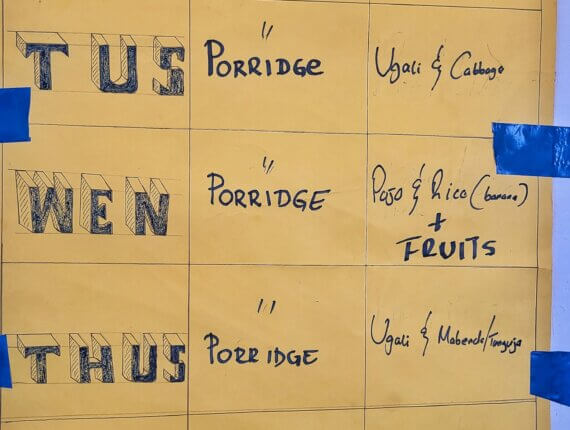 TUS
"
PORRIDGE
Ugali & Cabbage
WEN
"
PORRIDGE
Pojo & Rice (banana)
+
FRUITS
THUS
"
PORRIDGE
Ugali &